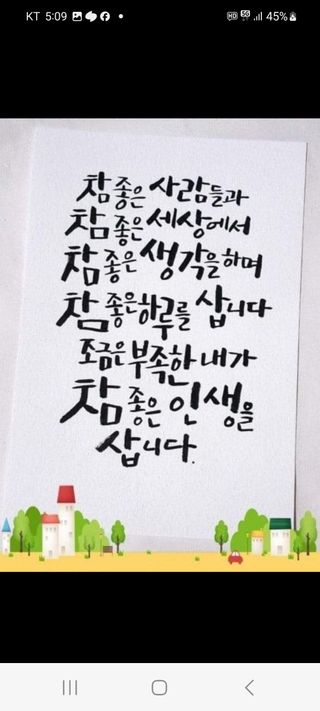 KT 5:09
HD 5G 45%
참 좋은 사람들과
참 좋은 세상에서
참 좋은 생각을 하며
참 좋은 하루를 삽니다
조금은 부족한 내가
참 좋은 인생을
삽니다.